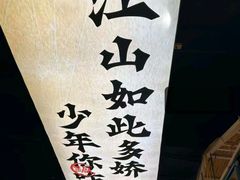 江山如此多娇
少年你